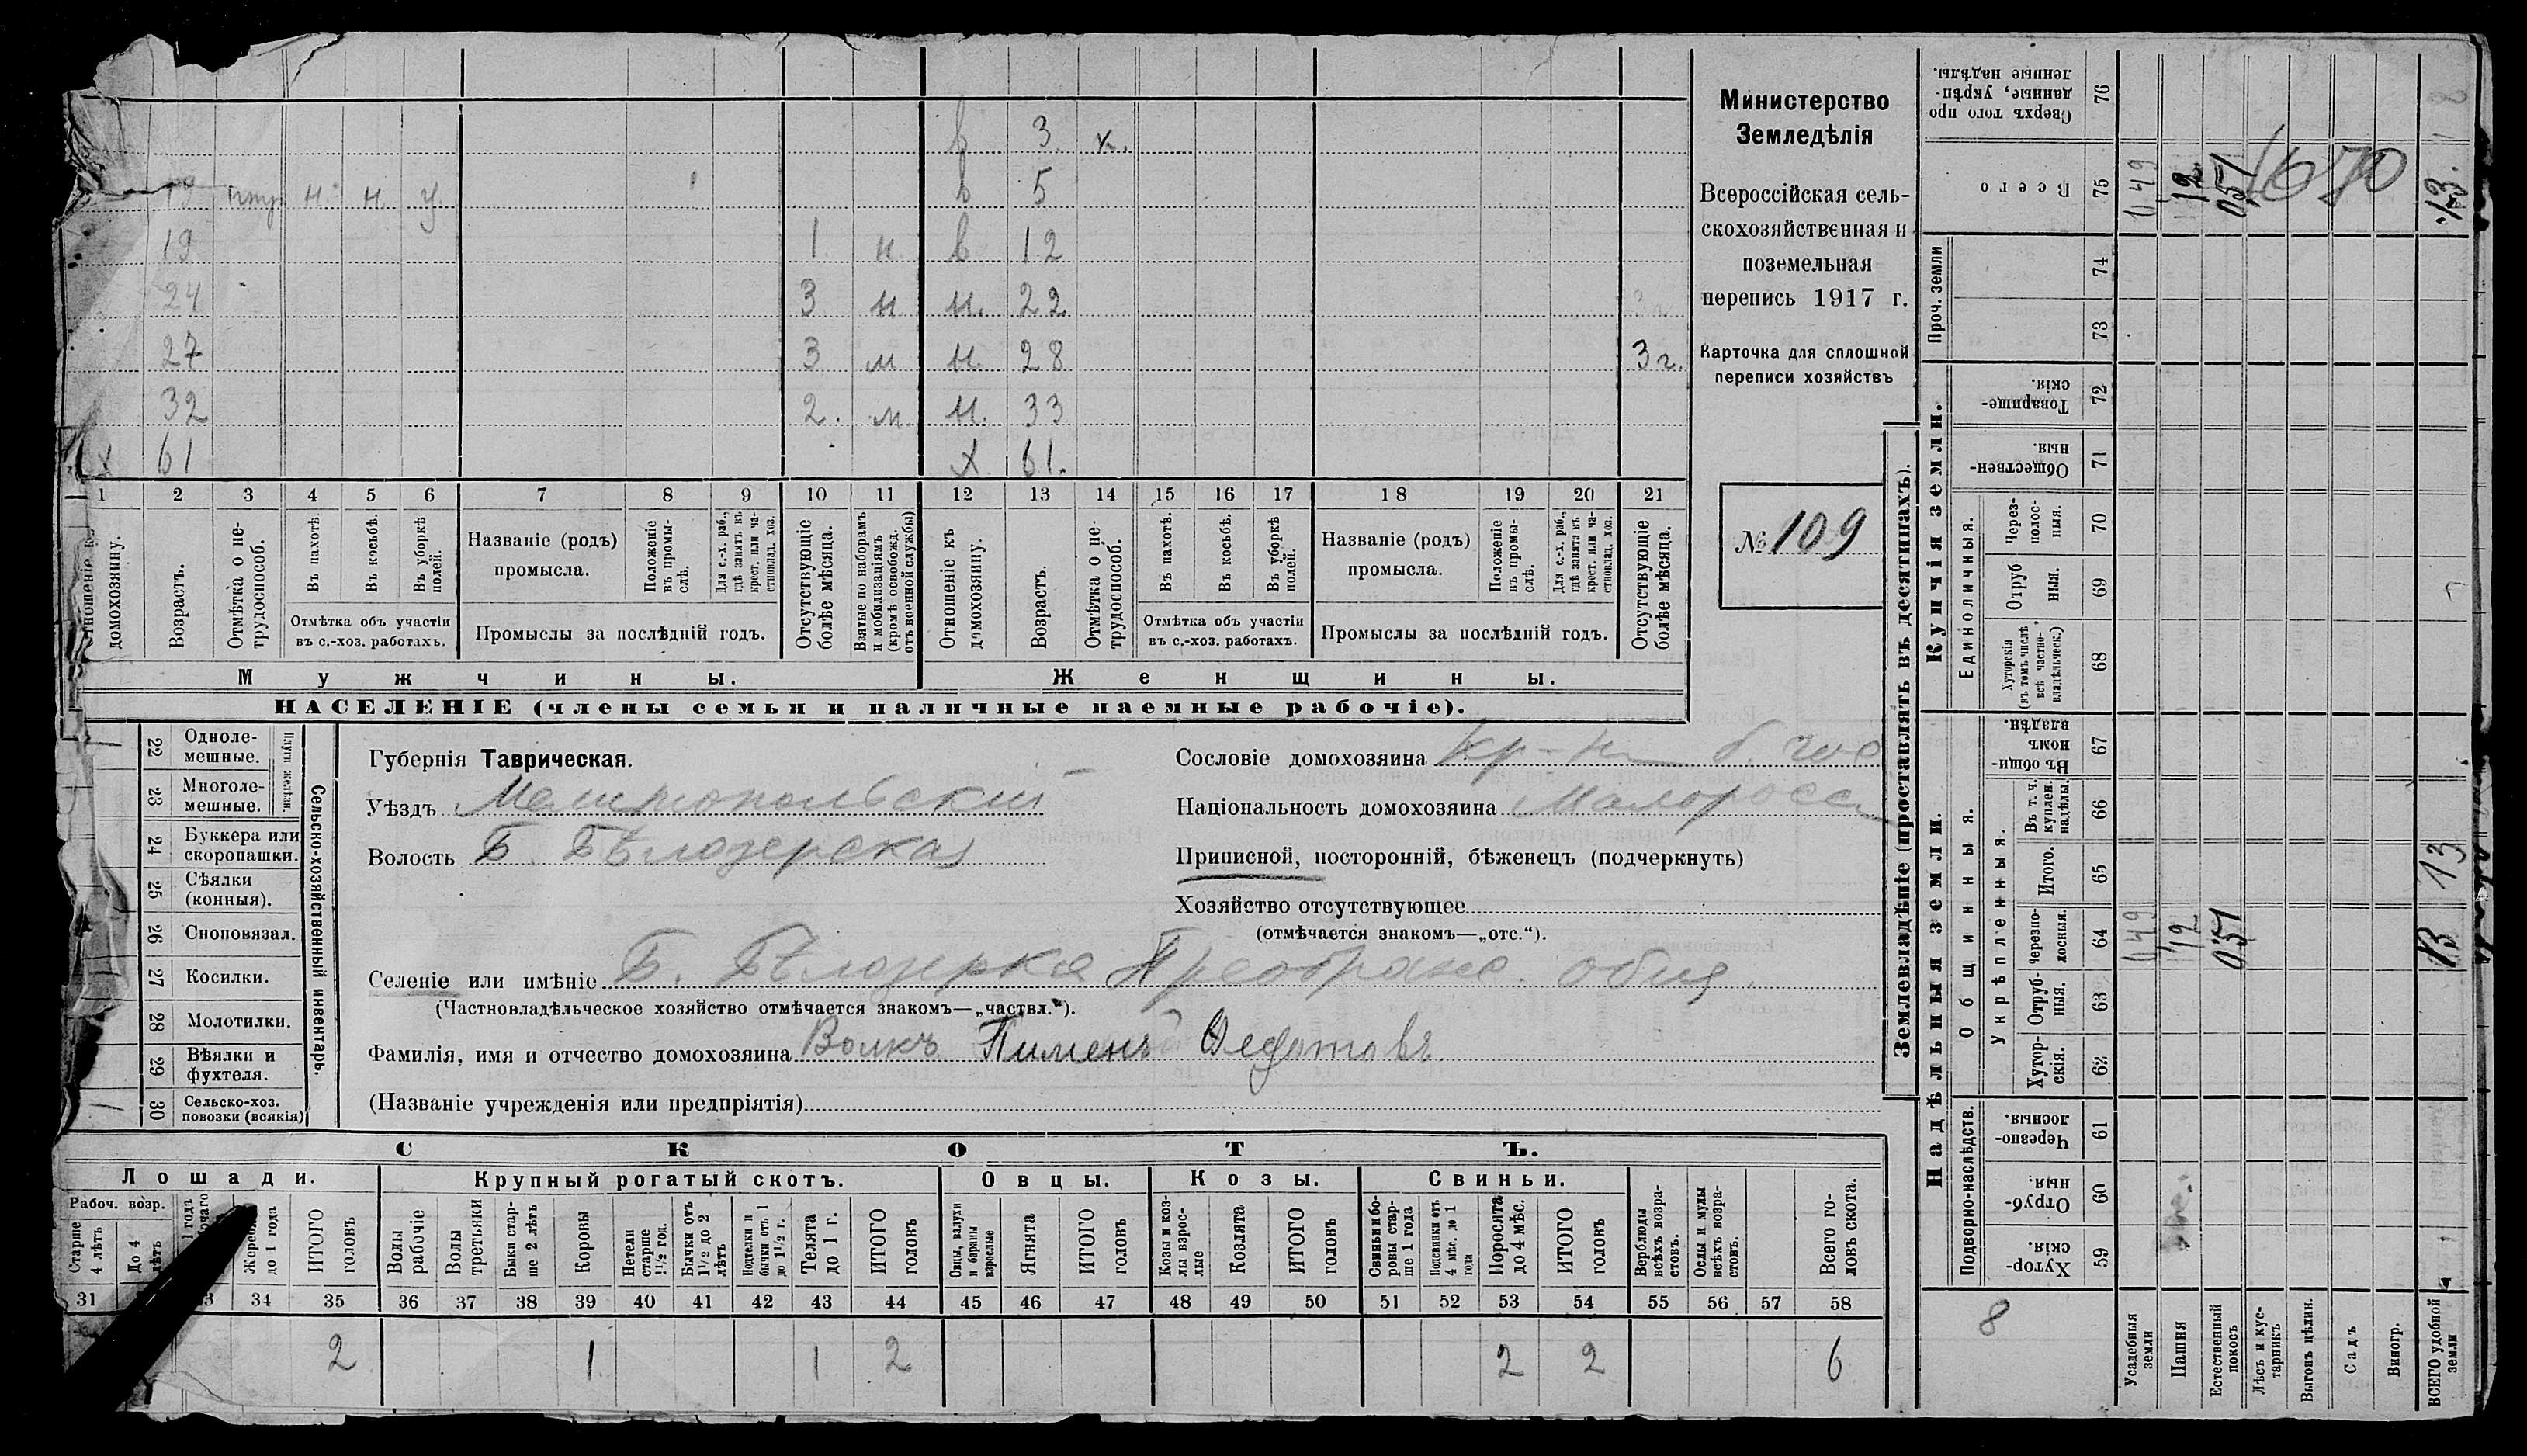 в 3 х.
19 н. н. у. в 5
19 1 н. в 12
24 3 н н. 22
27 3 м н. 28 3 г.
32 2. м н. 33
х 61 х 61.
1 2 3 4 5 6 7 8 9 10 11 12 13 14 15 16 17 18 19 20 21
Отношеніе къ домохозяину.
Возрастъ.
Отмѣтка о нетрудоспособ.
Въ пахотѣ.
Въ косьбѣ.
Въ уборкѣ полей.
Отмѣтка объ участіи
въ с.-хоз. работахъ.
Названіе (родъ)
промысла.
Положеніе въ промыслѣ.
Для с.-х. раб., гдѣ занятъ въ крест. или частновлад. хоз.
Промыслы за послѣдній годъ.
Отсутствующіе болѣе мѣсяца.
Взятые по наборамъ и мобилизаціямъ (кромѣ освобожд. отъ военной службы)
Отношеніе къ домохозяину.
Возрастъ.
Отмѣтка о нетрудоспособ.
Въ пахотѣ.
Въ косьбѣ.
Въ уборкѣ полей.
Отмѣтка объ участіи
въ с.-хоз. работахъ.
Названіе (родъ)
промысла.
Положеніе въ промыслѣ.
Для с.-х. раб., гдѣ занята въ крест. или частновлад. хоз.
Промыслы за послѣдній годъ.
Отсутствующіе болѣе мѣсяца.
Мужчины.
Женщины.
НАСЕЛЕНІЕ (члены семьи и наличные наемные рабочіе).
Министерство
Земледѣлія
Всероссійская сель-
скохозяйственная и
поземельная
перепись 1917 г.
Карточка для сплошной
переписи хозяйствъ
№ 109
22 Одноле-
мешные.
23 Многоле-
мешные.
Плуги желѣзн.
24 Буккера или
скоропашки.
25 Сѣялки
(конныя).
26 Сноповязал.
27 Косилки.
28 Молотилки.
29 Вѣялки и
фухтеля.
30 Сельско-хоз.
повозки (всякія)
Сельско-хозяйственный инвентарь.
Губернія Таврическая.
Уѣздъ Мелитопольскій
Волость Б. Бѣлозерская
Сословіе домохозяина кр-н б. гос
Національность домохозяина Малоросс
Приписной, посторонній, бѣженецъ (подчеркнуть)
Хозяйство отсутствующее
(отмѣчается знакомъ—„отс.“).
Селеніе или имѣніе Б. Бѣлозерка Преображ. общ.
(Частновладѣльческое хозяйство отмѣчается знакомъ—„частвл.“).
Фамилія, имя и отчество домохозяина Волкъ Пименъ Ѳедотовъ
(Названіе учрежденія или предпріятія)
СКОТЪ.
Лошади. Крупный рогатый скотъ. Овцы. Козы. Свиньи.
Рабоч. возр.
Старше 4 лѣтъ
До 4 лѣтъ
до 1 года
ИТОГО головъ
Волы рабочіе
Волы третьяки
Быки старше 2 лѣтъ
Коровы
Нетели старше 1½ год.
Бычки отъ 1½ до 2 лѣтъ
Подтелки и бычки отъ 1 до 1½ г.
Телята до 1 г.
ИТОГО головъ
Овцы, валухи и бараны взрослые
Ягнята
ИТОГО головъ
Козы и козлы взрослые
Козлята
ИТОГО головъ
Свиньи и боровы старше 1 года
Подсвинки отъ 4 мѣс. до 1 года
Поросята до 4 мѣс.
ИТОГО головъ
Верблюды всѣхъ возрастовъ.
Ослы и мулы всѣхъ возрастовъ.
Всего головъ скота.
31 34 35 36 37 38 39 40 41 42 43 44 45 46 47 48 49 50 51 52 53 54 55 56 57 58
2 1 1 2 2 2 6
Землевладѣніе (проставлять въ десятинахъ).
Купчія земли.
Надѣльныя земли.
Сверхъ того проданные, укрѣпленные надѣлы. 76
Всего 75 049 12 051 1670 13.
Проч. земли 74
73
Товарищескія. 72
Общественныя. 71
Единоличныя.
Черезполосныя. 70
Отрубныя. 69
Хуторскія (въ томъ числѣ всѣ частновладѣльческ.) 68
Общинныя.
Въ общинномъ владѣн. 67
Укрѣпленныя.
Въ т. ч. куплен. надѣлы. 66
Итого. 65 13
Черезполосныя. 64 049 12 051 13
Отрубныя. 63
Хуторскія. 62
Подворно-наслѣдств.
Черезполосныя. 61
Отрубныя. 60
Хуторскія. 59
8
Усадебныя земли
Пашня
Естественный покосъ
Лѣсъ и кустарникъ
Выгонъ цѣлин.
Садъ
Виногр.
ВСЕГО удобной земли